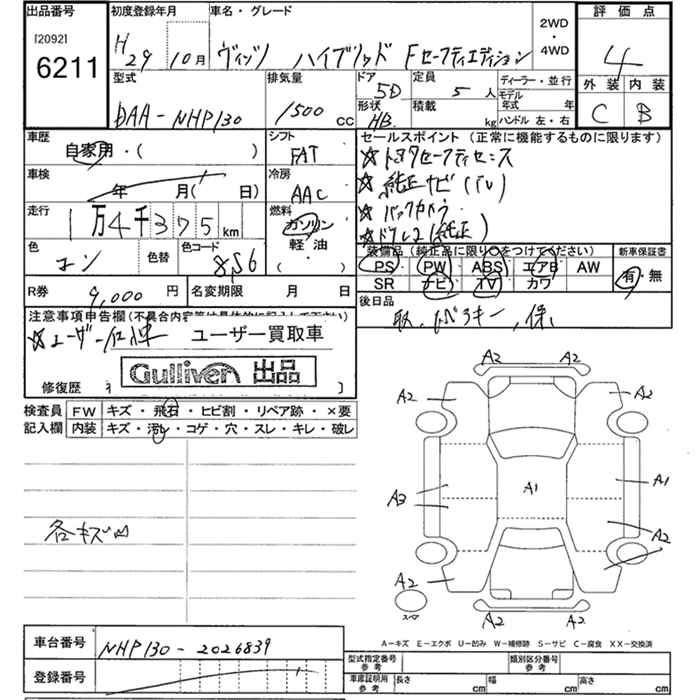 出品番号 初度登録年月 車名・グレード 2WD・4WD 評価点
[2092] 6211 H29 10月 ヴィッツ ハイブリッド Fセーフティエディション 4
外装 内装
C B
型式 排気量 ドア 定員 ディーラー・並行
DAA-NHP130 1500 cc 5D 5人 モデル年式 年
形状 積載 ハンドル 左・右
HB kg
車歴 シフト セールスポイント(正常に機能するものに限ります)
自家用・( ) FAT ☆トヨタセーフティセンス
車検 冷房 ☆純正ナビ(TV)
年 月( 日) AAC ☆バックカメラ
走行 燃料
1万4千375km ガソリン
軽油
( )
色 色替 色コード
8S6
装備品(純正品に限り○をつけてください) 新車保証書
PS PW ABS エアB AW 有・無
SR ナビ TV カワ
R券 9,000円 名変期限 月 日
後日品
取、スペアキー、保
注意事項申告欄(不具合内容等は具体的に記入して下さい)
☆ユーザー ユーザー買取車
Gulliver 出品
修復歴 [ ]
検査員 FW キズ・飛石・ヒビ割・リペア跡・×要
記入欄 内装 キズ・汚レ・コゲ・穴・スレ・キレ・破レ
各キズ
A2 A2
A2 A2
A3 A1 A1
A2
A2
A2 A2
スペア
A-キズ E-エクボ U-凹み W-補修跡 S-サビ C-腐食 XX-交換済
車台番号 NHP130-2026839
登録番号
型式指定番号 参考 類別区分番号 参考
車庫証明用 参考 長さ cm 幅 cm 高さ cm